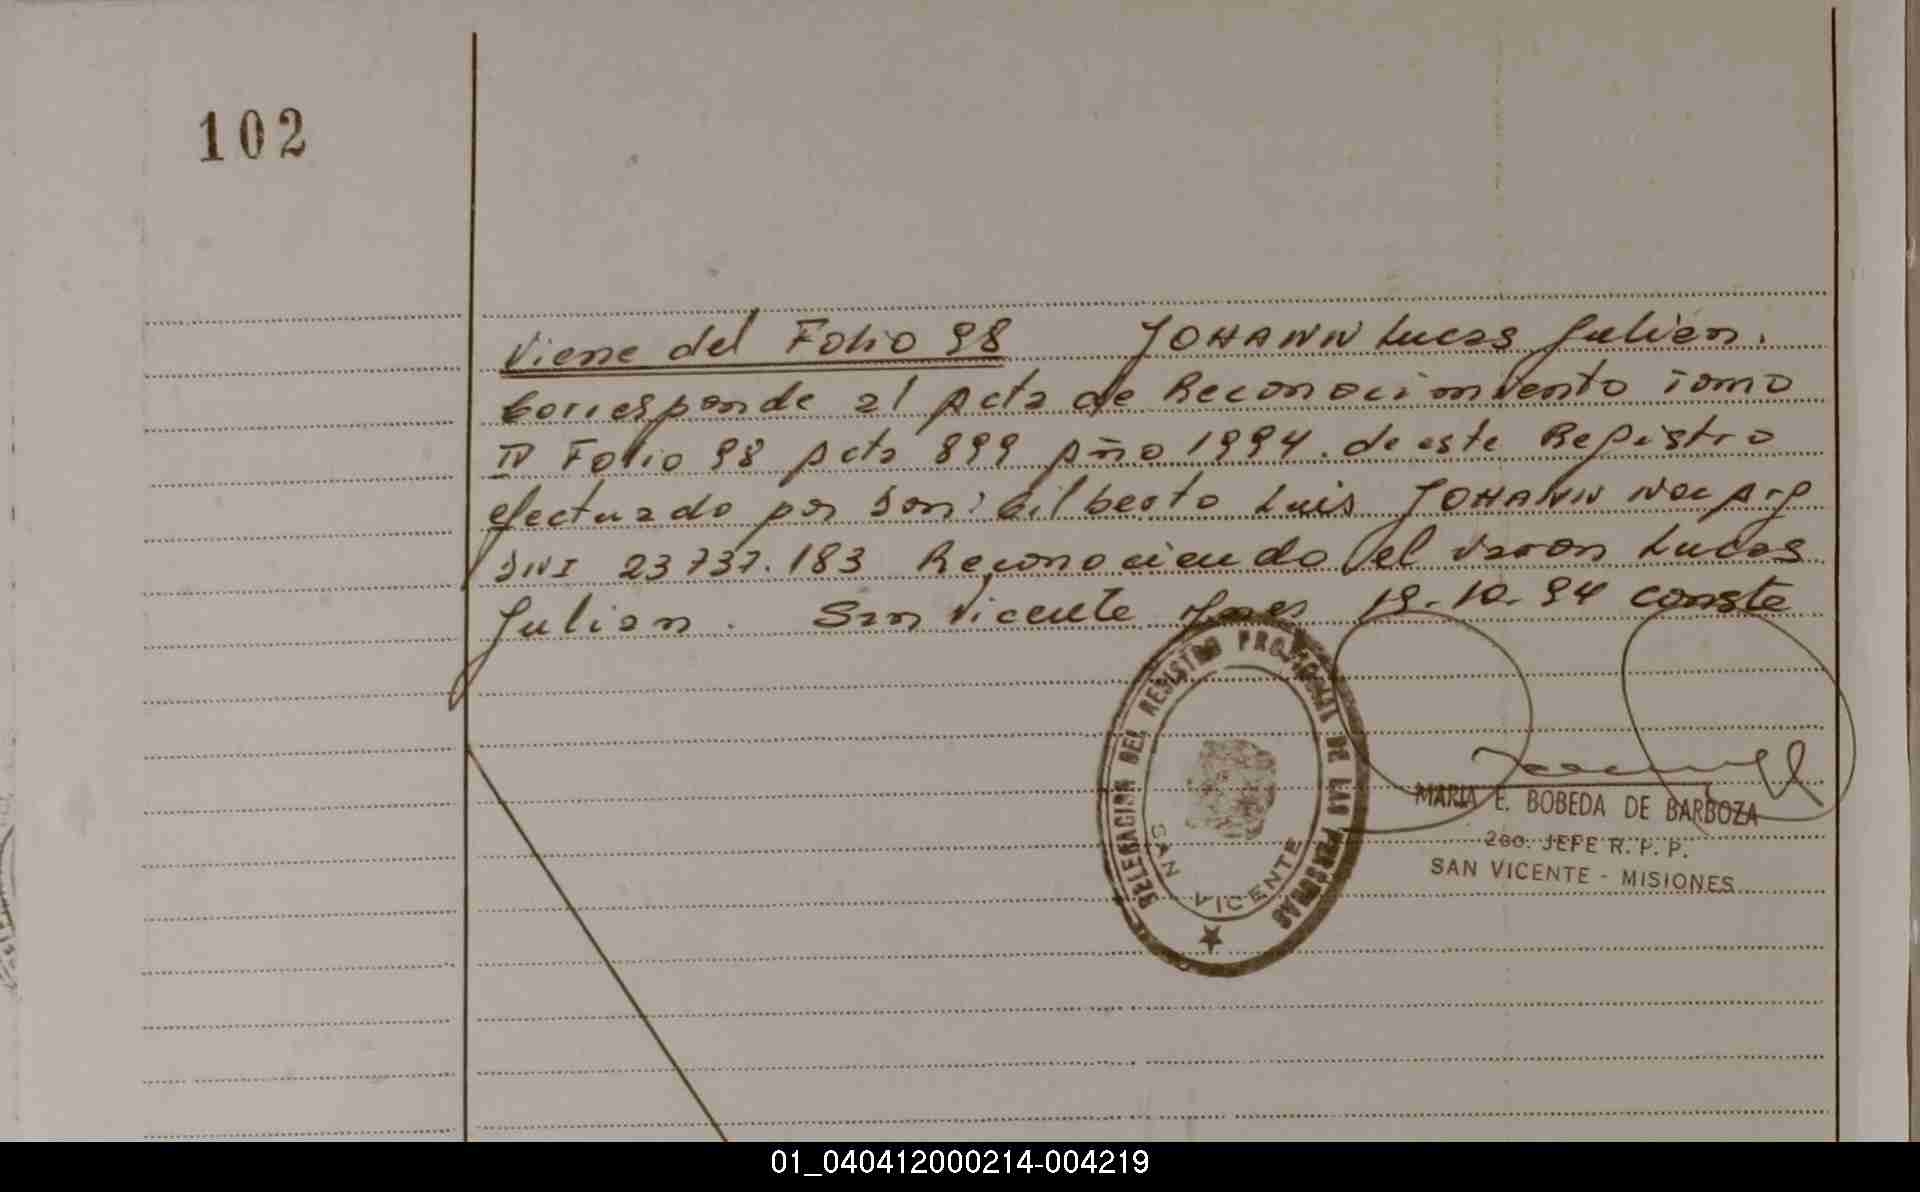 102
Viene del Folio 98 JOHANN Lucas Julián.
Corresponde al Acta de Reconocimiento Tomo
IV Folio 98 Acta 899 Año 1994. de este Registro
efectuado por Don: Gilberto Luis JOHANN Nac Arg
DNI 23737.183 Reconociendo el varon Lucas
Julian. San Vicente Mnes 19-10-94 conste
DELEGACION DEL REGISTRO PROVINCIAL DE LAS PERSONAS
SAN VICENTE
MARIA E. BOBEDA DE BARBOZA
2do. JEFE R. P. P.
SAN VICENTE - MISIONES
01_040412000214-004219